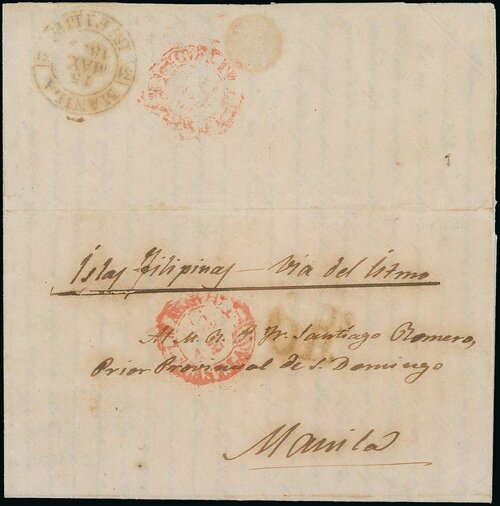 MANILA
15
MAY
Islas Filipinas - Via del Istmo
Al M. R. P. Fr. Santiago Romero,
Prior Provincial de S. Domingo
Manila